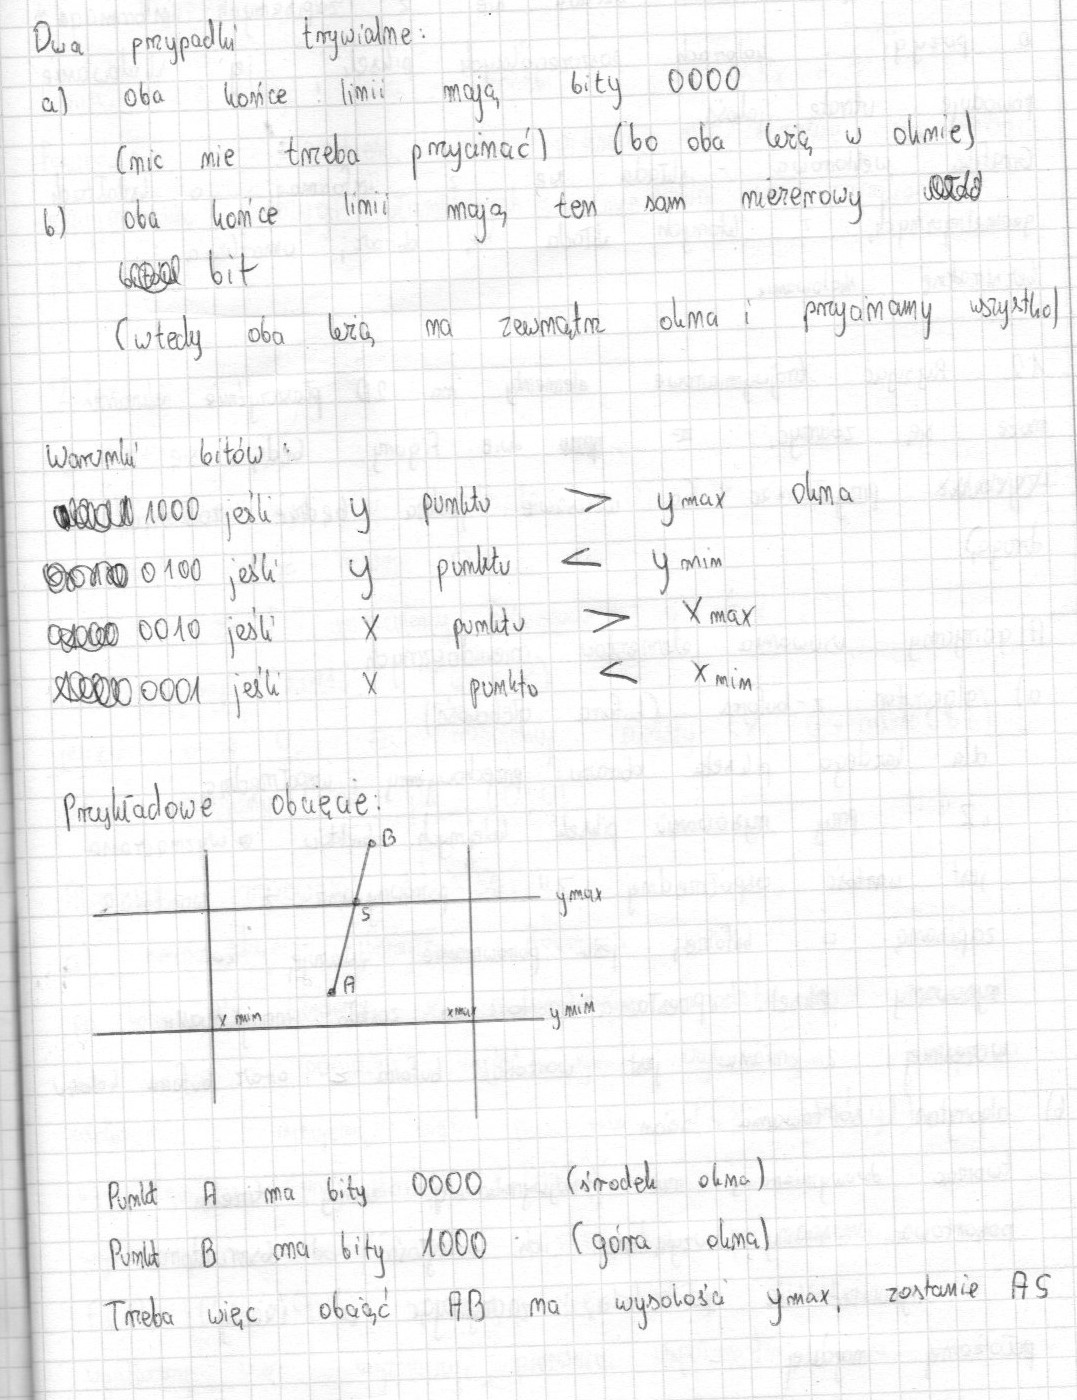 Dwa przypadki trywialne:
a) oba końce linii mają bity 0000
(nic nie trzeba przycinać) (bo oba leżą w oknie)
b) oba końce linii mają ten sam niezerowy
bit
(wtedy oba leżą na zewnątrz okna i przycinamy wszystko)
Warunki bitów:
1000 jeśli y punktu > ymax okna
0100 jeśli y punktu < ymin
0010 jeśli x punktu > xmax
0001 jeśli x punktu < xmin
Przykładowe obcięcie:
B
ymax
S
A
xmin xmax ymin
Punkt A ma bity 0000 (środek okna)
Punkt B ma bity 1000 (góra okna)
Trzeba więc obciąć AB na wysokości ymax, zostanie AS